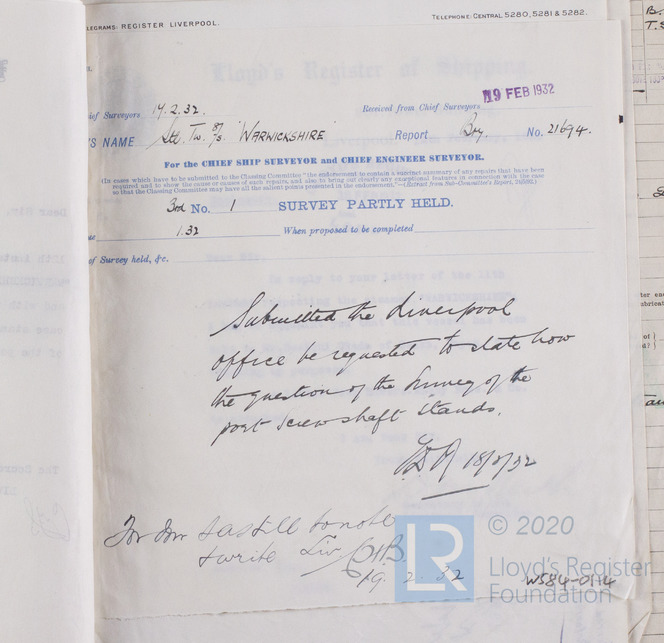 LEGRAMS: REGISTER LIVERPOOL.
TELEPHONE: CENTRAL 5280, 5281 & 5282.
hief Surveyors 17.2.32.
Received from Chief Surveyors 19 FEB 1932
'S NAME Stl. Tw. "WARWICKSHIRE" Report No. 21694.
For the CHIEF SHIP SURVEYOR and CHIEF ENGINEER SURVEYOR.
(In cases which have to be submitted to the Classing Committee "the endorsement to contain a succinct summary of any repairs that have been
required and to show the cause or causes of such repairs, and also to bring out clearly any exceptional features in connection with the case
so that the Classing Committee may have all the salient points presented in the endorsement."—(Extract from Sub-Committee's Report,
3rd No. 1 SURVEY PARTLY HELD.
ue 1.32 When proposed to be completed
of Survey held, &c.
Submitted the Liverpool
office be requested to state how
the question of the Survey of the
port screw shaft stands.
18/2/32
For Mr to note
& write Liv
19.2.32
LR
© 2020
Lloyd's Register
Foundation
W584-0114